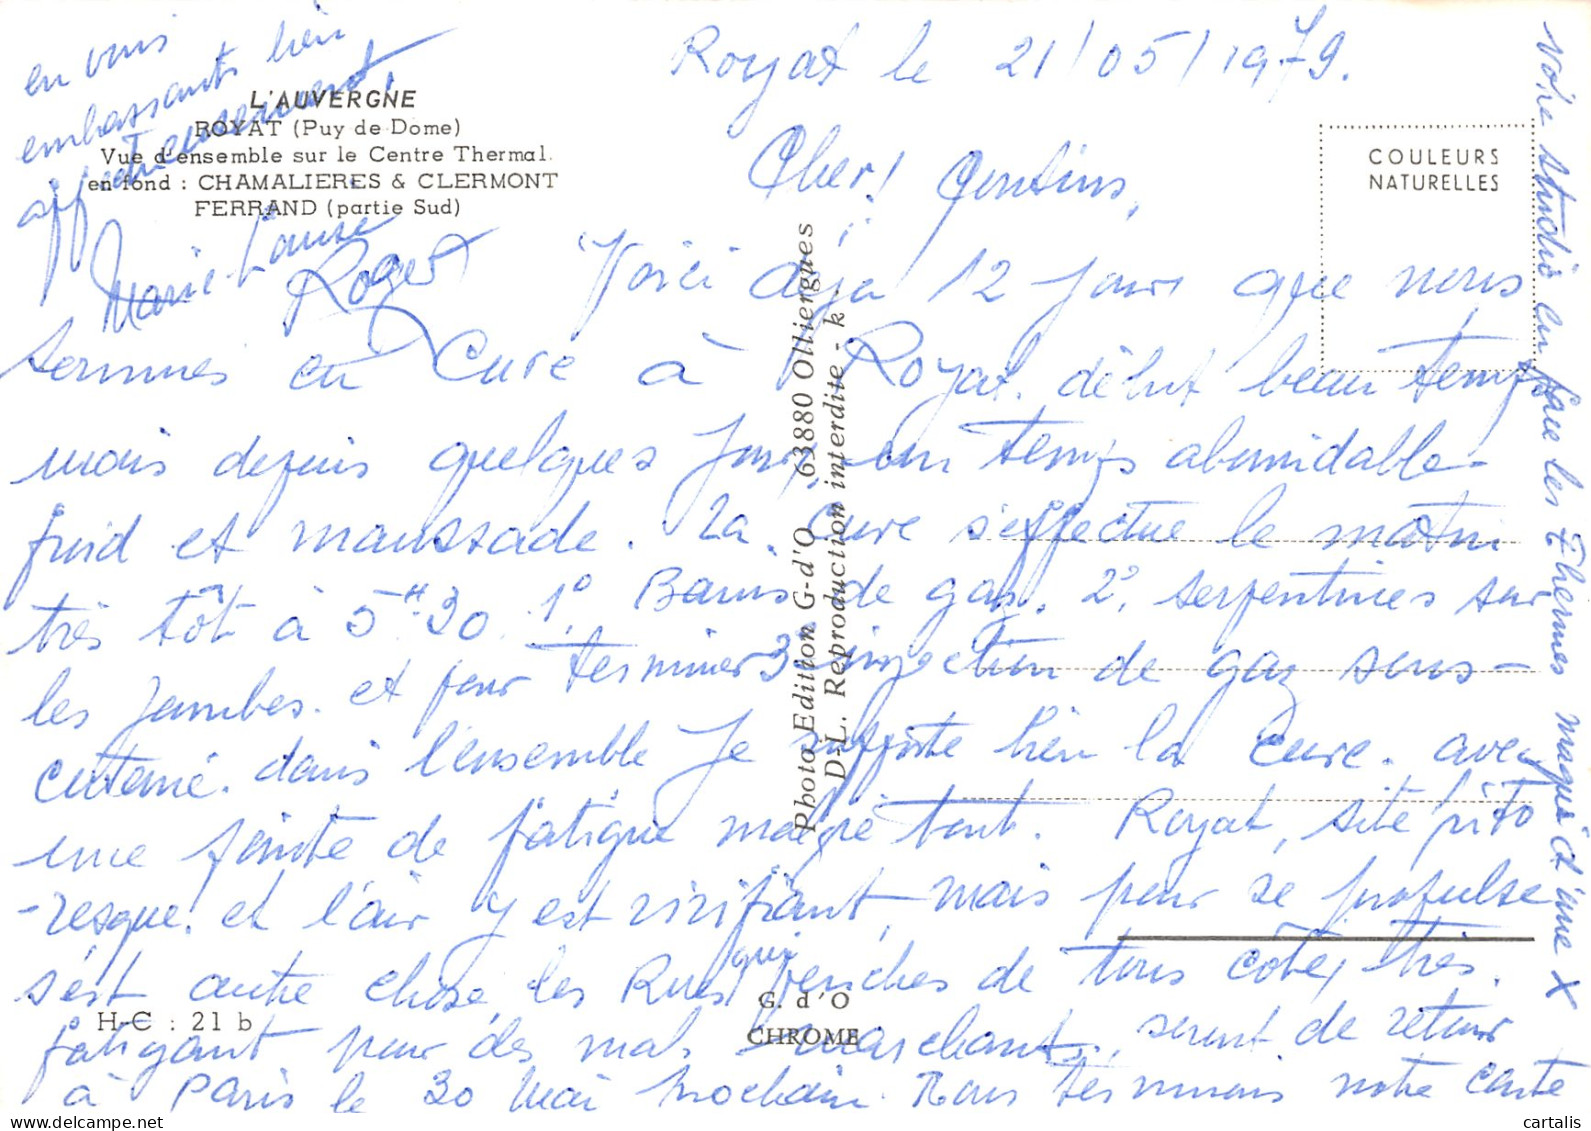 Royat le 21/05/1979.
Cher! Cousins,
Voici déja 12 Jours que nous
sommes en Cure à Royat. début beau temps
mais depuis quelques Jours, un temps abomidable
froid et maussade. La cure s'effectue le matin
très tôt à 5H30. 1° Bains de gaz. 2°. serpentines sur
les jambes. et pour terminer 3° injection de gaz sous-
cutané. dans l'ensemble Je supporte bien la Cure. avec
une pointe de fatigue malgré tout. Royat, site pito
-resque. et l'air y est vivifiant, mais pour se propulse
s'est autre chose, les Rues qui penches de tous côtés, très.
fatigant pour des mal marchants., seront de retour
à Paris le 30 Mai prochain. Nous terminons notre carte
en vous
embassants bien
affectueusement,
Marie-Louise
Roger
Votre studio en face les Thermes marqué d'une X
L'AUVERGNE
ROYAT (Puy de Dome)
Vue d'ensemble sur le Centre Thermal.
en fond : CHAMALIERES & CLERMONT
FERRAND (partie Sud)
COULEURS
NATURELLES
Photo Edition G-d'O 63880 Olliergues
D-L. Reproduction interdite - k
H-C : 21 b
G. d'O
CHROME
delcampe.net
cartalis